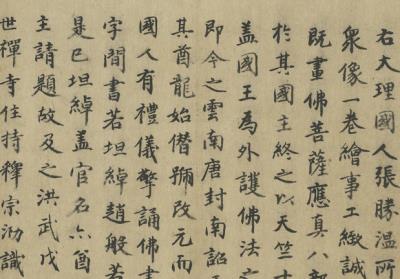 右大理國人張勝溫所
衆像一卷繪事工緻誠
既畫佛菩薩應真八部
於其國主終之以天竺
盖國王為外護佛法之
即今之雲南唐封南詔
其酋龍始僭號改元而
國人有禮儀擎誦佛書
字間書若坦綽趙般若
是已坦綽盖官名六酋
主請題故及之洪武戊
世禪寺住持釋宗泐識